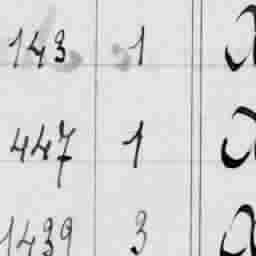 143 1
447 1
1439 3